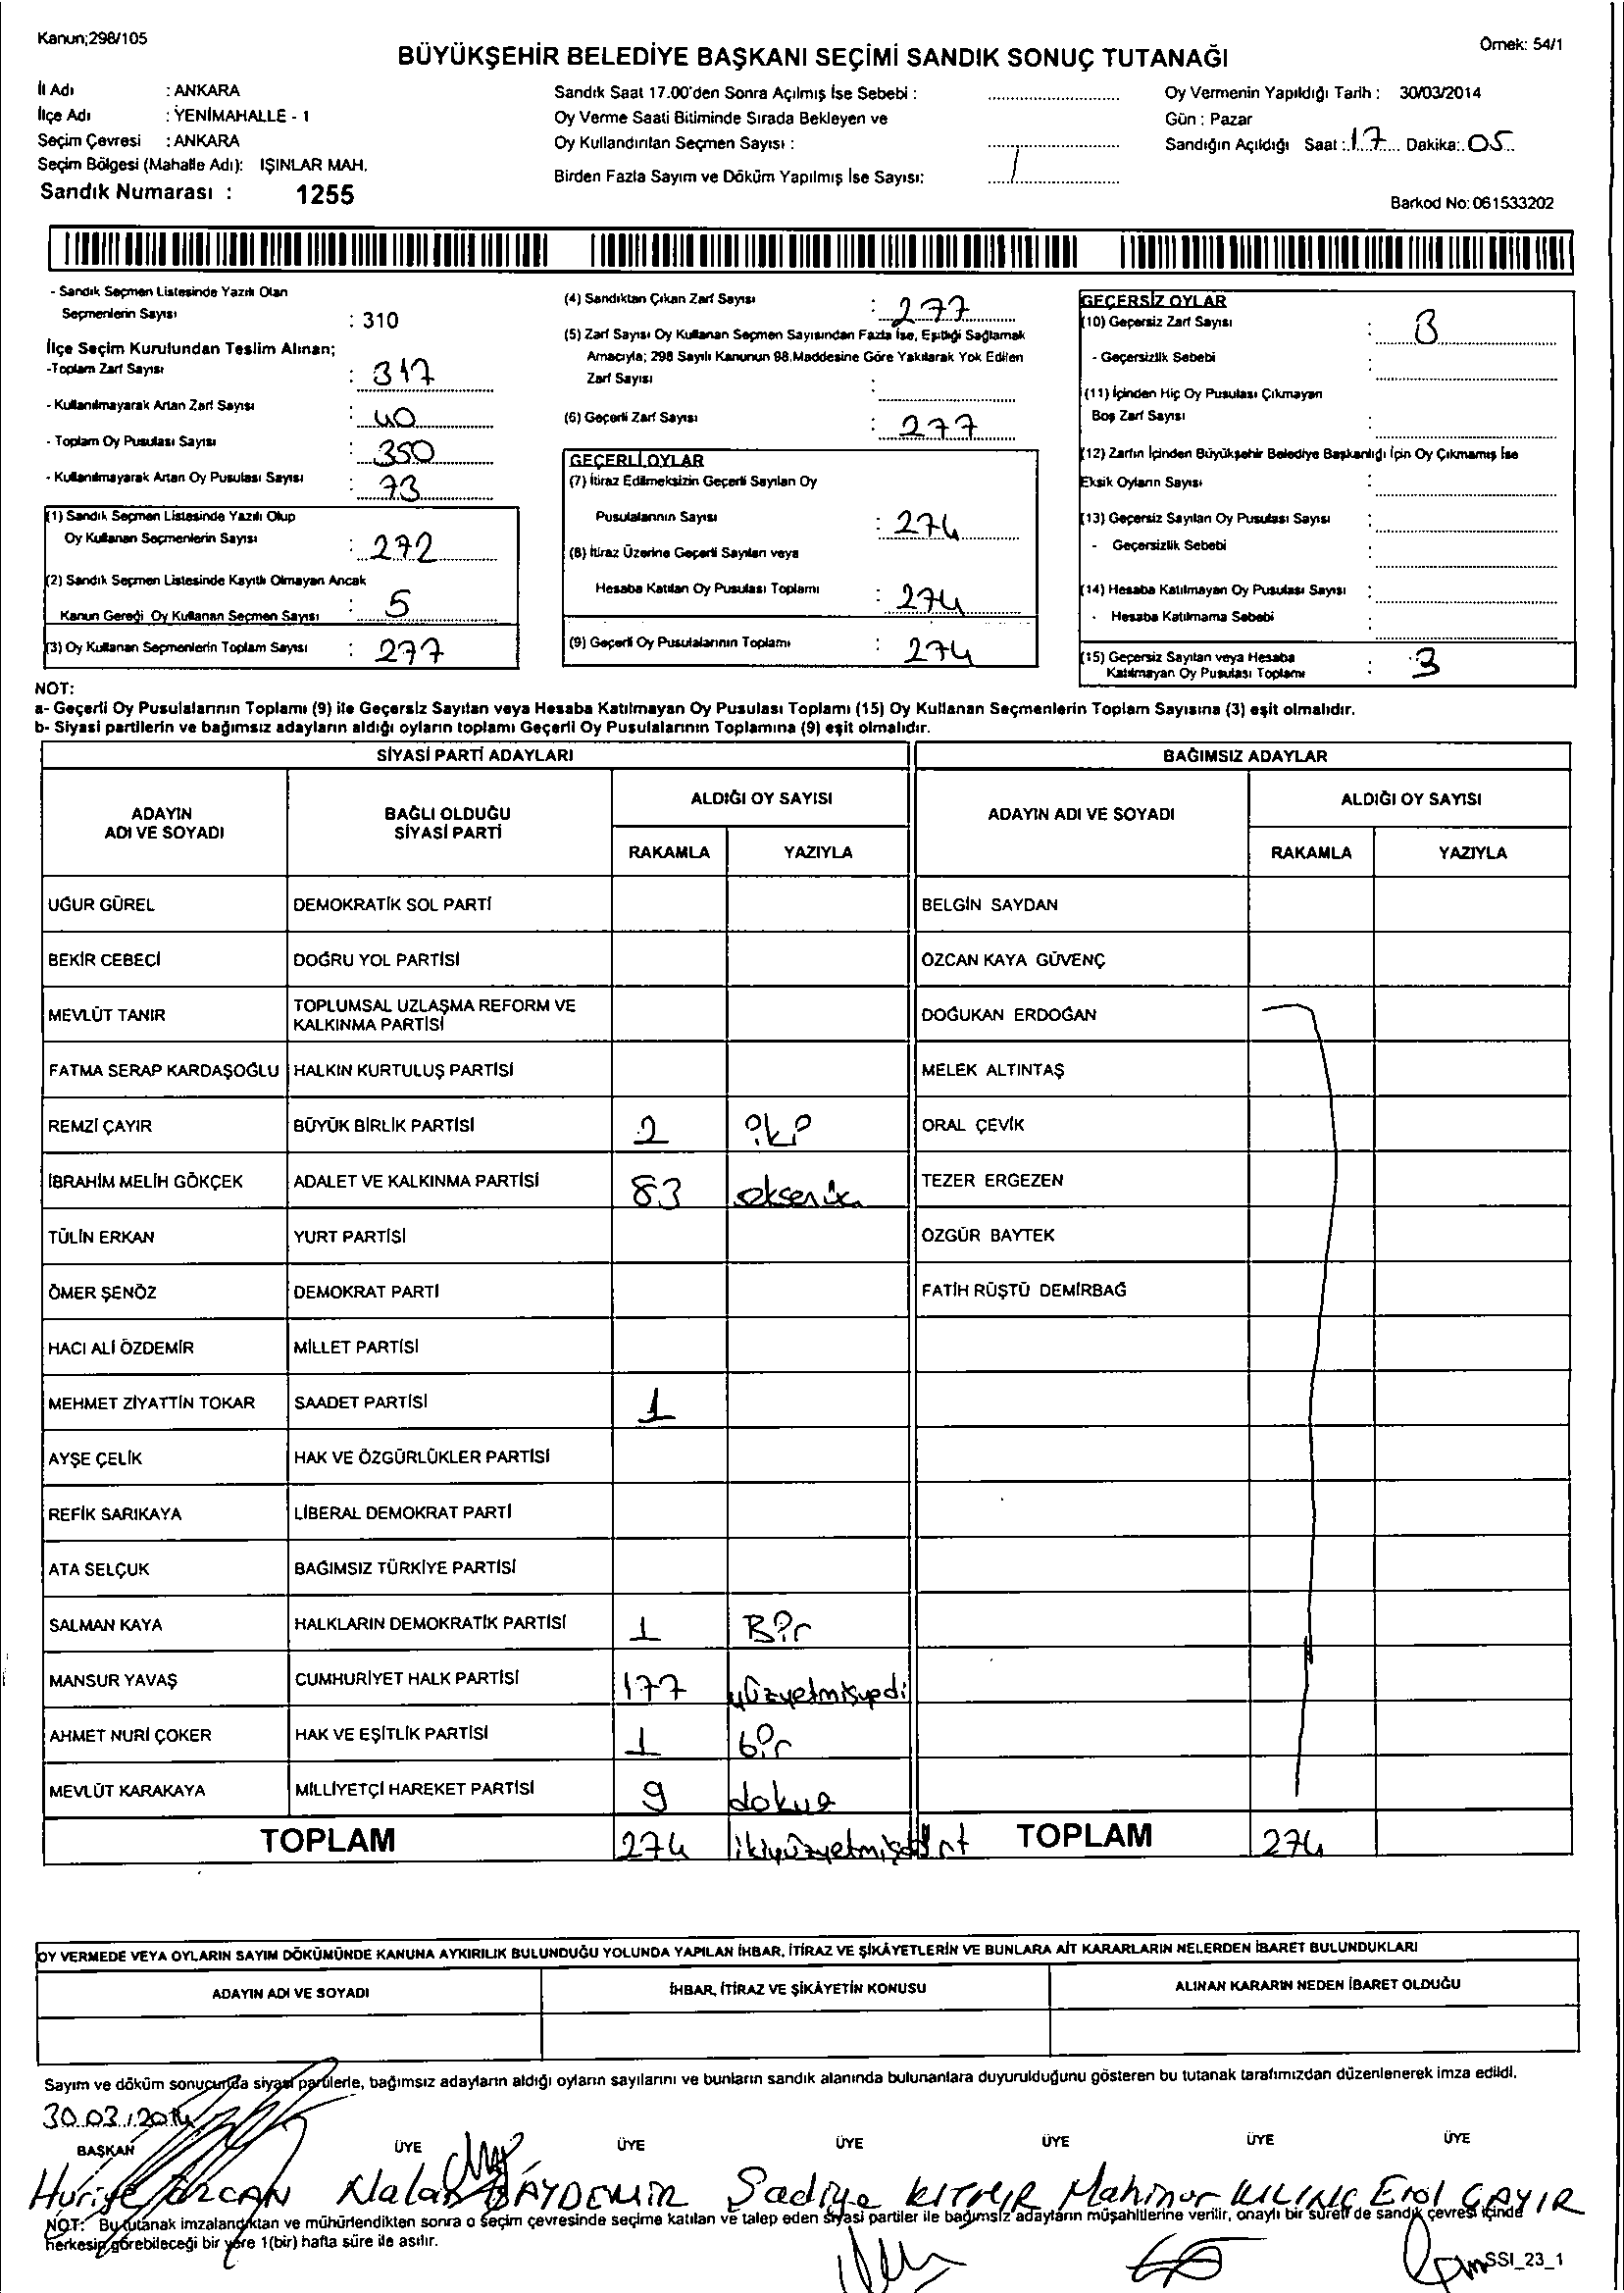 Kanun;298/105
Örnek: 54/1
BÜYÜKŞEHİR BELEDİYE BAŞKANI SEÇİMİ SANDIK SONUÇ TUTANAĞI
İl Adı : ANKARA
İlçe Adı : YENİMAHALLE - 1
Seçim Çevresi : ANKARA
Seçim Bölgesi (Mahalle Adı): IŞINLAR MAH.
Sandık Numarası : 1255
Sandık Saat 17.00'den Sonra Açılmış İse Sebebi :
Oy Verme Saati Bitiminde Sırada Bekleyen ve
Oy Kullandırılan Seçmen Sayısı :
Birden Fazla Sayım ve Döküm Yapılmış İse Sayısı: /
Oy Vermenin Yapıldığı Tarih : 30/03/2014
Gün : Pazar
Sandığın Açıldığı Saat : 17 Dakika: 05
Barkod No: 061533202
- Sandık Seçmen Listesinde Yazılı Olan
Seçmenlerin Sayısı : 310
İlçe Seçim Kurulundan Teslim Alınan;
-Toplam Zarf Sayısı : 317
- Kullanılmayarak Artan Zarf Sayısı : 40
- Toplam Oy Pusulası Sayısı : 350
- Kullanılmayarak Artan Oy Pusulası Sayısı : 73
(1) Sandık Seçmen Listesinde Yazılı Olup
Oy Kullanan Seçmenlerin Sayısı : 272
(2) Sandık Seçmen Listesinde Kayıtlı Olmayan Ancak
Kanun Gereği Oy Kullanan Seçmen Sayısı : 5
(3) Oy Kullanan Seçmenlerin Toplam Sayısı : 277
(4) Sandıktan Çıkan Zarf Sayısı : 277
(5) Zarf Sayısı Oy Kullanan Seçmen Sayısından Fazla İse, Eşitliği Sağlamak
Amacıyla; 298 Sayılı Kanunun 98.Maddesine Göre Yakılarak Yok Edilen
Zarf Sayısı :
(6) Geçerli Zarf Sayısı : 277
GEÇERLİ OYLAR
(7) İtiraz Edilmeksizin Geçerli Sayılan Oy
Pusulalarının Sayısı : 274
(8) İtiraz Üzerine Geçerli Sayılan veya
Hesaba Katılan Oy Pusulası Toplamı : 274
(9) Geçerli Oy Pusulalarının Toplamı : 274
GEÇERSİZ OYLAR
(10) Geçersiz Zarf Sayısı : 3
- Geçersizlik Sebebi :
(11) İçinden Hiç Oy Pusulası Çıkmayan
Boş Zarf Sayısı :
(12) Zarfın İçinden Büyükşehir Belediye Başkanlığı İçin Oy Çıkmamış İse
Eksik Oyların Sayısı :
(13) Geçersiz Sayılan Oy Pusulası Sayısı :
- Geçersizlik Sebebi :
(14) Hesaba Katılmayan Oy Pusulası Sayısı :
- Hesaba Katılmama Sebebi :
(15) Geçersiz Sayılan veya Hesaba
Katılmayan Oy Pusulası Toplamı : 3
NOT:
a- Geçerli Oy Pusulalarının Toplamı (9) ile Geçersiz Sayılan veya Hesaba Katılmayan Oy Pusulası Toplamı (15) Oy Kullanan Seçmenlerin Toplam Sayısına (3) eşit olmalıdır.
b- Siyasi partilerin ve bağımsız adayların aldığı oyların toplamı Geçerli Oy Pusulalarının Toplamına (9) eşit olmalıdır.
SİYASİ PARTİ ADAYLARI BAĞIMSIZ ADAYLAR
ADAYIN ADI VE SOYADI BAĞLI OLDUĞU SİYASİ PARTİ ALDIĞI OY SAYISI ADAYIN ADI VE SOYADI ALDIĞI OY SAYISI
RAKAMLA YAZIYLA RAKAMLA YAZIYLA
UĞUR GÜREL DEMOKRATİK SOL PARTİ BELGİN SAYDAN
BEKİR CEBECİ DOĞRU YOL PARTİSİ ÖZCAN KAYA GÜVENÇ
MEVLÜT TANIR TOPLUMSAL UZLAŞMA REFORM VE KALKINMA PARTİSİ DOĞUKAN ERDOĞAN
FATMA SERAP KARDAŞOĞLU HALKIN KURTULUŞ PARTİSİ MELEK ALTINTAŞ
REMZİ ÇAYIR BÜYÜK BİRLİK PARTİSİ 2 iki ORAL ÇEVİK
İBRAHİM MELİH GÖKÇEK ADALET VE KALKINMA PARTİSİ 83 seksenüç TEZER ERGEZEN
TÜLİN ERKAN YURT PARTİSİ ÖZGÜR BAYTEK
ÖMER ŞENÖZ DEMOKRAT PARTİ FATİH RÜŞTÜ DEMİRBAĞ
HACI ALİ ÖZDEMİR MİLLET PARTİSİ
MEHMET ZİYATTİN TOKAR SAADET PARTİSİ 1
AYŞE ÇELİK HAK VE ÖZGÜRLÜKLER PARTİSİ
REFİK SARIKAYA LİBERAL DEMOKRAT PARTİ
ATA SELÇUK BAĞIMSIZ TÜRKİYE PARTİSİ
SALMAN KAYA HALKLARIN DEMOKRATİK PARTİSİ 1 Bir
MANSUR YAVAŞ CUMHURİYET HALK PARTİSİ 177 yüzyetmişyedi
AHMET NURİ ÇOKER HAK VE EŞİTLİK PARTİSİ 1 bir
MEVLÜT KARAKAYA MİLLİYETÇİ HAREKET PARTİSİ 9 dokuz
TOPLAM 274 ikiyüzyetmişdört TOPLAM 274
OY VERMEDE VEYA OYLARIN SAYIM DÖKÜMÜNDE KANUNA AYKIRILIK BULUNDUĞU YOLUNDA YAPILAN İHBAR, İTİRAZ VE ŞİKÂYETLERİN VE BUNLARA AİT KARARLARIN NELERDEN İBARET BULUNDUKLARI
ADAYIN ADI VE SOYADI İHBAR, İTİRAZ VE ŞİKÂYETİN KONUSU ALINAN KARARIN NEDEN İBARET OLDUĞU
Sayım ve döküm sonucunda siyasi partilerle, bağımsız adayların aldığı oyların sayılarını ve bunların sandık alanında bulunanlara duyurulduğunu gösteren bu tutanak tarafımızdan düzenlenerek imza edildi.
30.03.2014
BAŞKAN ÜYE ÜYE ÜYE ÜYE ÜYE ÜYE
Huriye ÖZCAN Nalan BAYDEMİR Sadiye Mahinur KILINÇ Erol ÇAYIR
NOT: Bu tutanak imzalandıktan ve mühürlendikten sonra o seçim çevresinde seçime katılan ve talep eden siyasi partiler ile bağımsız adayların müşahitlerine verilir, onaylı bir sureti de sandık çevresi içinde
herkesin görebileceği bir yere 1(bir) hafta süre ile asılır.
SSI_23_1